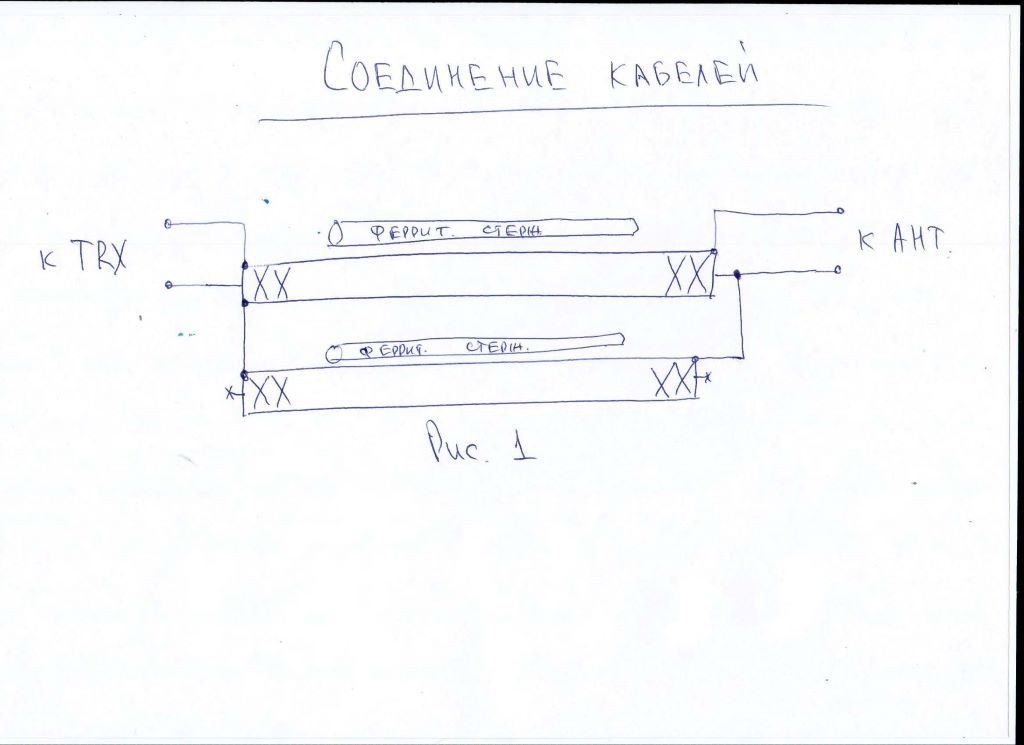 Соединение кабелей
Феррит. стерж.
к TRX
к Ант.
XX
XX
Феррит. стерж.
x
XX
XX
x
Рис. 1